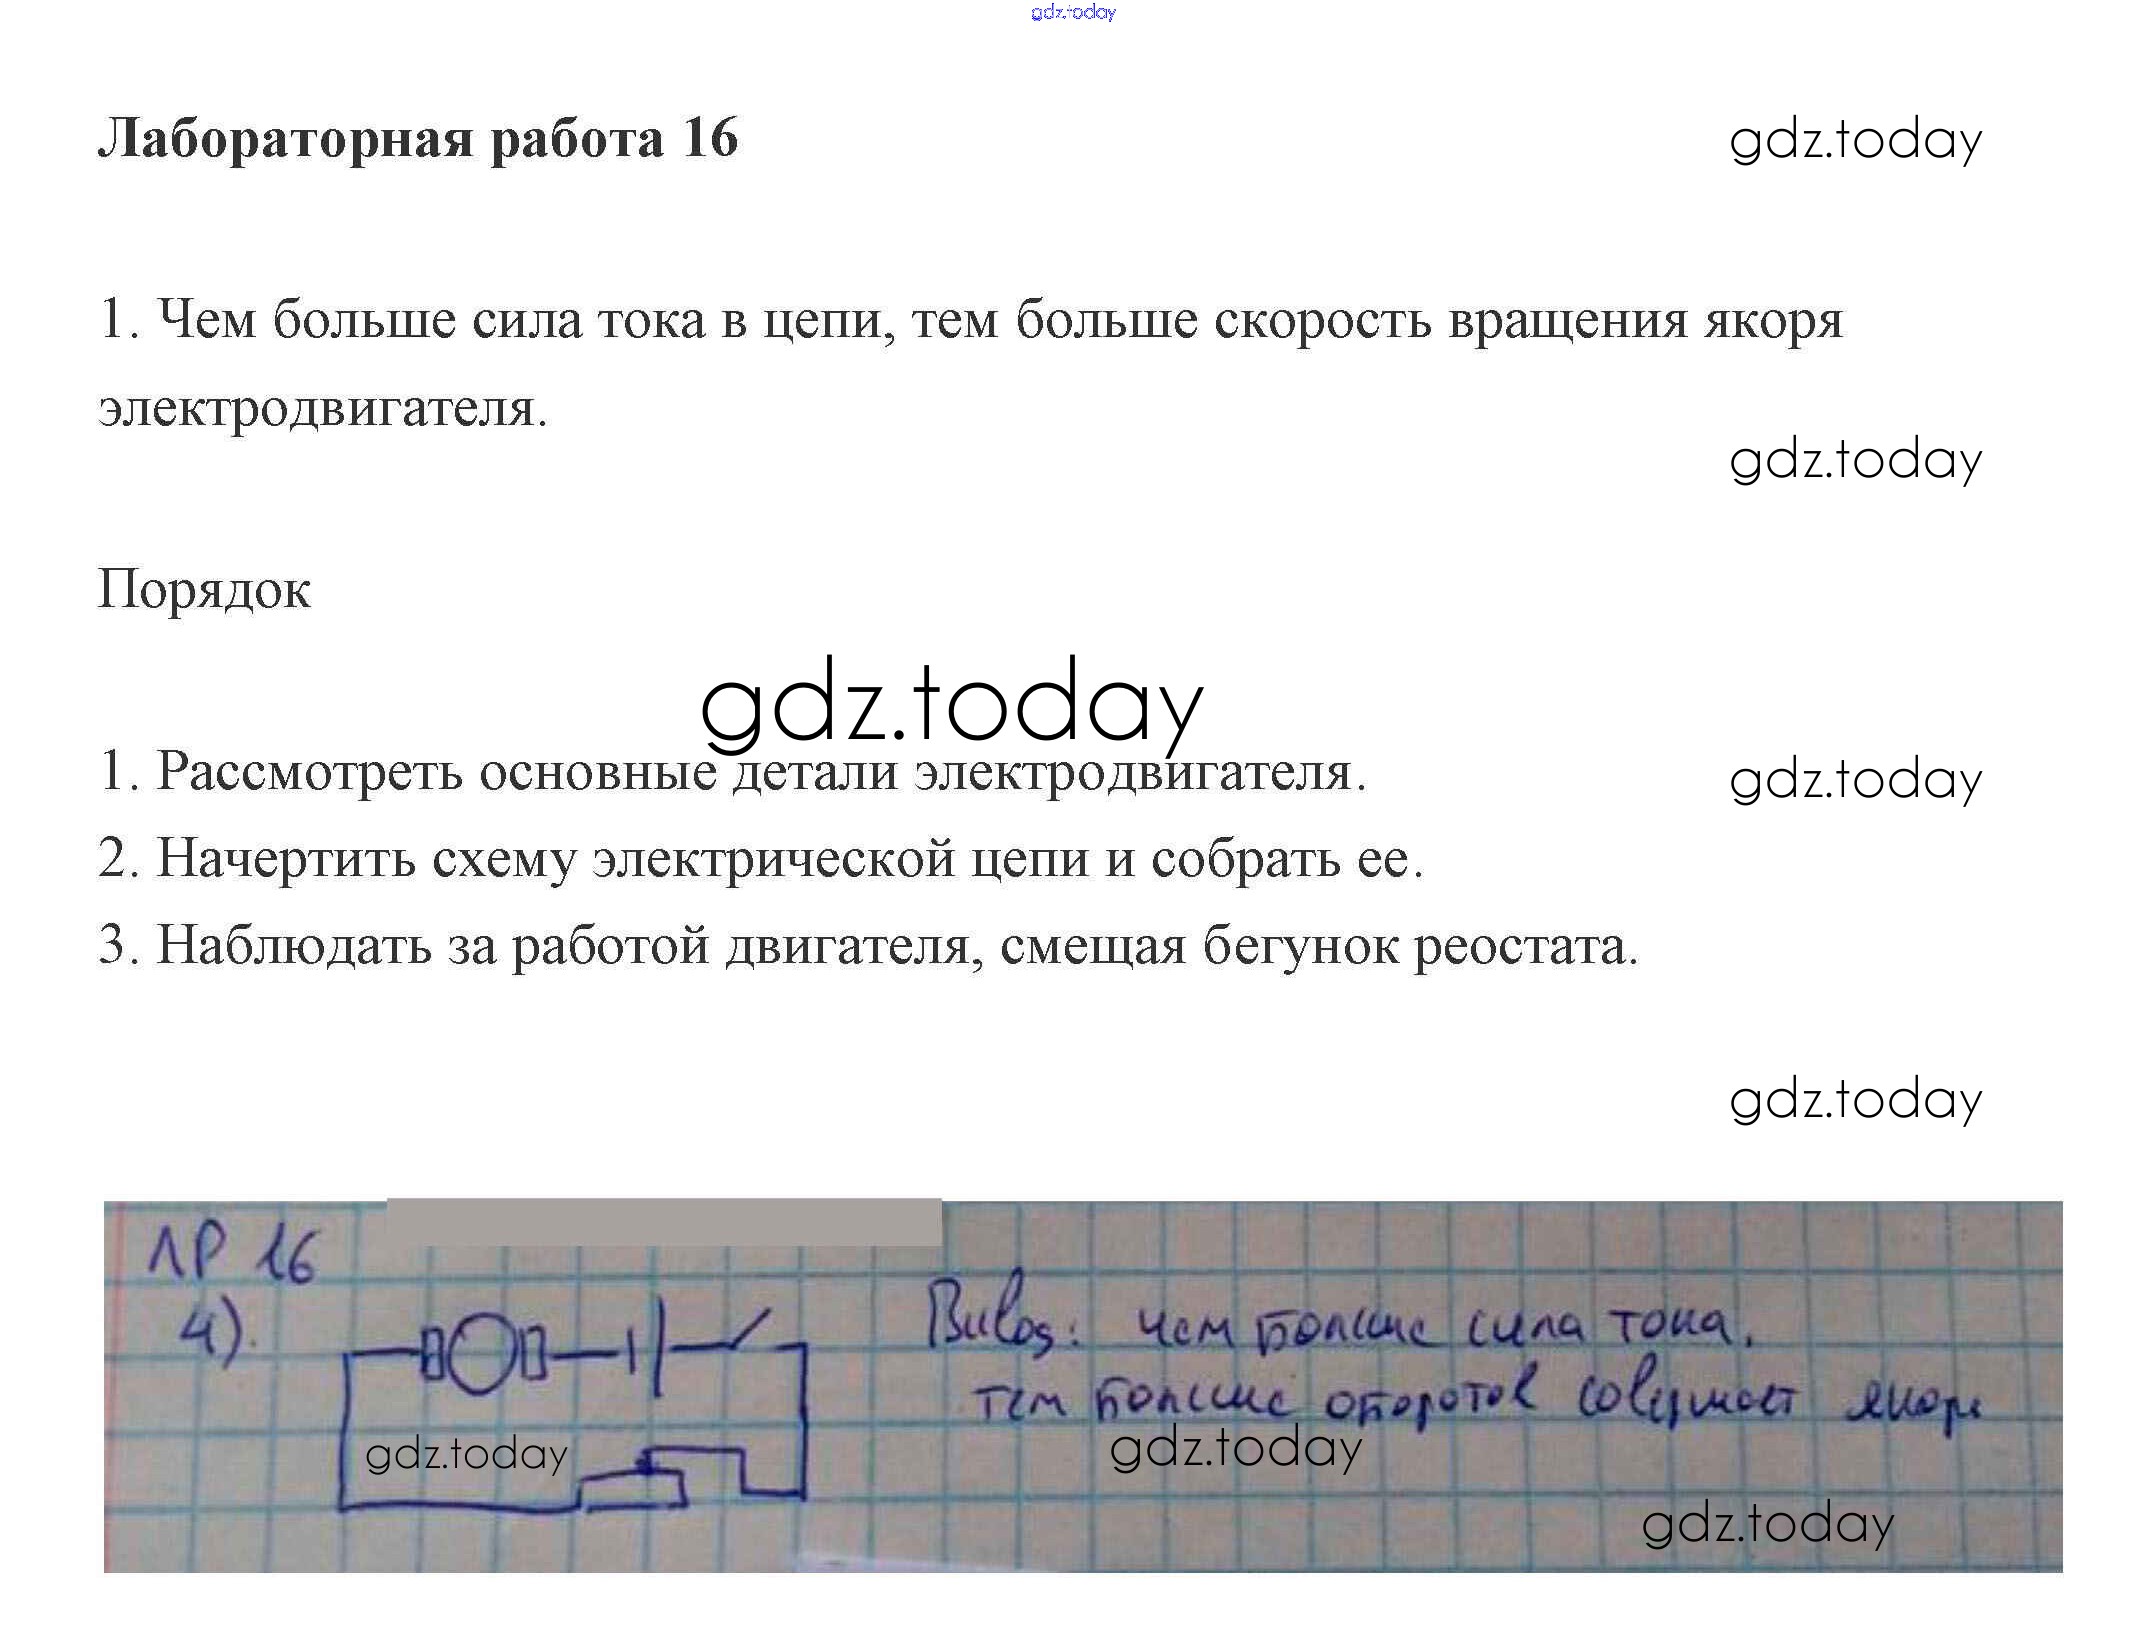 gdz.today
Лабораторная работа 16
gdz.today
1. Чем больше сила тока в цепи, тем больше скорость вращения якоря
электродвигателя.
gdz.today
Порядок
gdz.today
1. Рассмотреть основные детали электродвигателя.
gdz.today
2. Начертить схему электрической цепи и собрать ее.
3. Наблюдать за работой двигателя, смещая бегунок реостата.
gdz.today
ЛР 16
4).
Вывод: чем больше сила тока,
тем больше оборотов совершает якорь
gdz.today
gdz.today
gdz.today